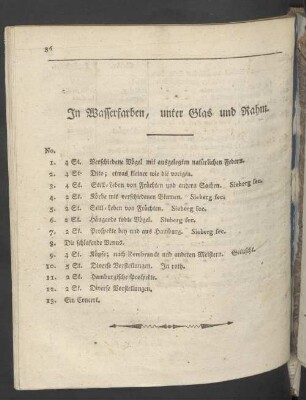 36
In Wasserfarben, unter Glas und Rahm.
No.
1. 4 St. Verschiedene Vögel mit aufgelegten natürlichen Federn.
2. 4 St. Dito; etwas kleiner wie die vorigen.
3. 4 St. Still-Leben von Früchten und andern Sachen. Sieberg fec.
4. 2 St. Körbe mit verschiedenen Blumen. Sieberg fec.
5. 2 St. Still-Leben von Früchten. Sieberg fec.
6. 2 St. Hängende todte Vögel. Sieberg fec.
7. 2 St. Prospekte bey und aus Hamburg. Sieberg fec.
8. Die schlafende Venus.
9. 4 St. Köpfe; nach Rembrandt und anderen Meistern.
10. 5 St. Diverse Vorstellungen. In roth.
11. 4 St. Hamburgische Prospekte.
12. 2 St. Diverse Vorstellungen.
13. Ein Concert.